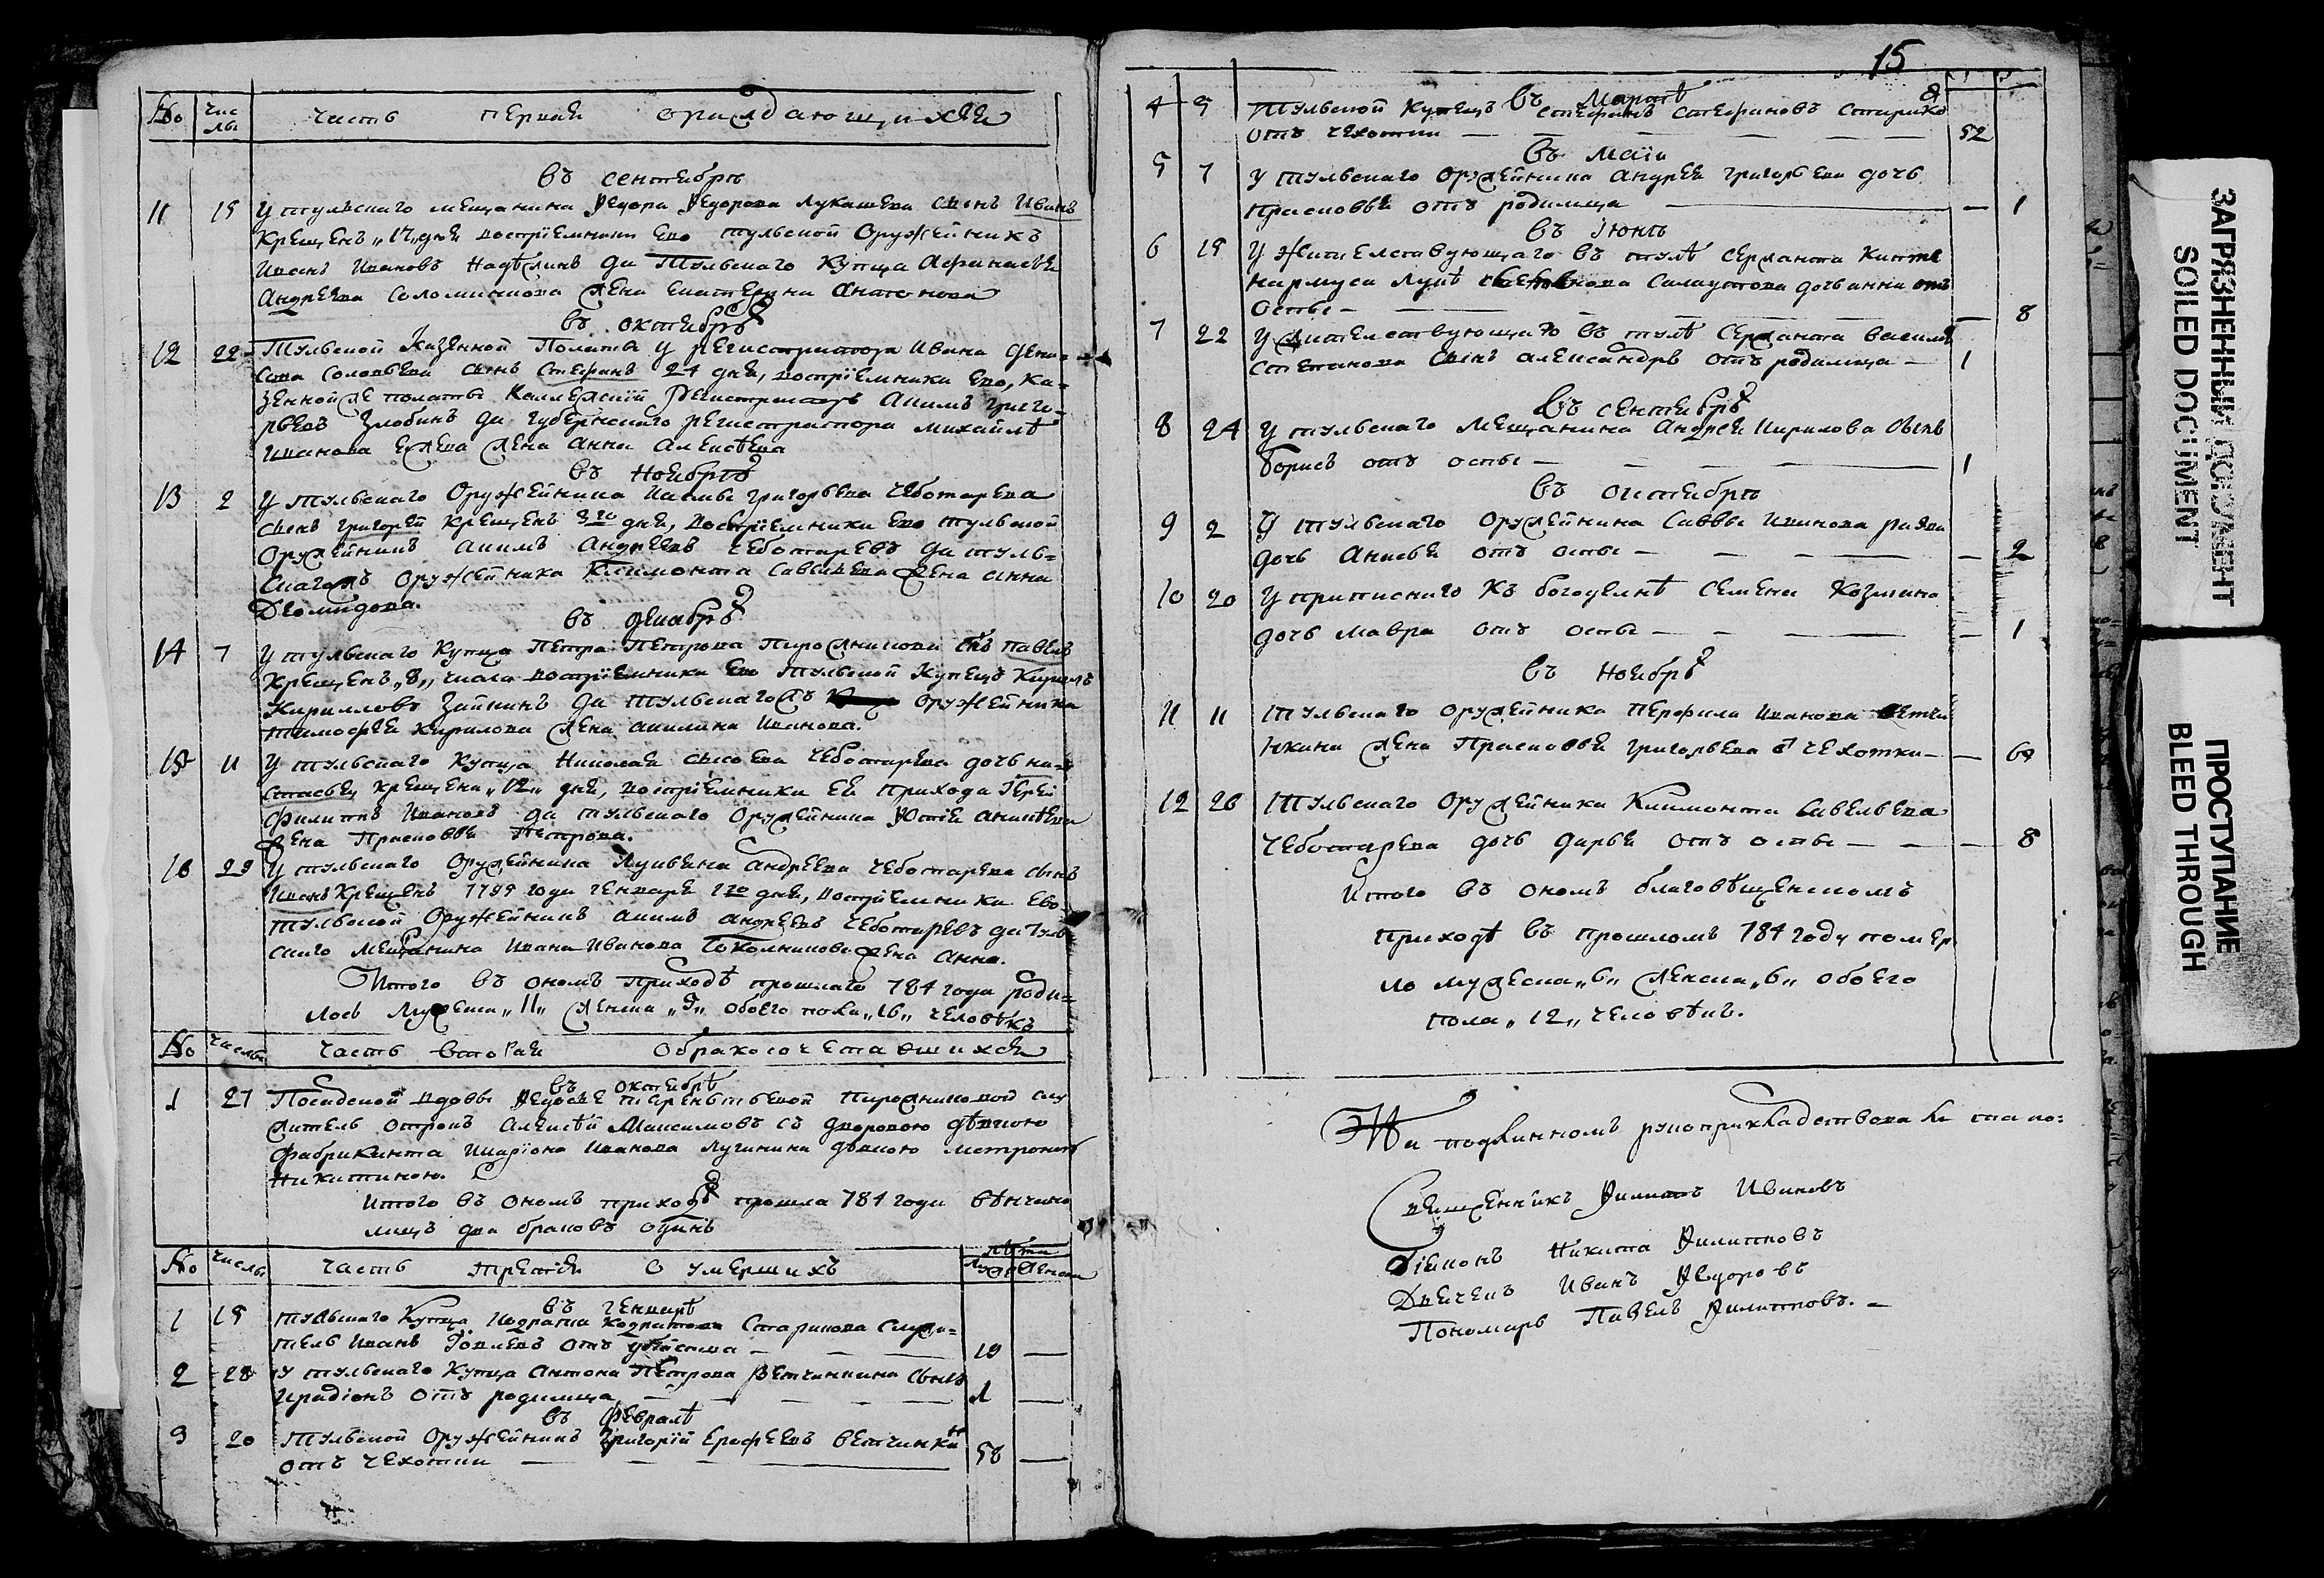 № Чис
лы Часть первая о раждающихся
въ сентябрѣ
11 15 У тульскаго мещанина Ѳедора Ѳедорова Лукашева сынъ Иванъ
крещенъ „17„ дня восприемники ево тульской оружейникъ
Иванъ Ивановъ да Тульскаго купца Афанасья
Андреева Соломинцова жена Екатерина Антонова
въ октябрѣ
12 22 Тульской казенной Полаты у регистратора Ивана Дени-
сова Соловьева сынъ Стефанъ 24 дня, восприемники ево, ка-
зеннойже полаты Коллежскій Регистраторъ Акимъ Григо-
рьевъ Злобинъ да губернскаго регистратора Михайлы
Иванова жена Анна Алексѣева
въ ноябрѣ
13 2 У тульскаго Оружейника Иасафы Григорьева Чеботарева
сынъ Григорей крещенъ 3го дня, восприемники ево тульской
оружейникъ Акимъ Андреевъ Чеботаревъ да туль-
скагожъ оружейника Климонта Савельева жена Анна
Деомидова.
въ декабрѣ
14 7 У тульскаго купца Петра Петрова Пирожникова снъ Павелъ
крещенъ „8„ числа восприемники ево Тульской Купецъ Кирилъ
Кирилловъ да тульскагожъ оружейника
Тимофея Кирилова жена Акилина Иванова.
15 11 У тульскаго купца Николая Сысоева Чеботарева дочь На-
стасья крещена „12„ дня, восприемники ея прихода Іерей
Филиппъ Ивановъ да тульскаго оружейника Аникѣева
жена Прасковья Петрова.
16 29 У тульскаго оружейника Лукьяна Андреева Чеботарева сынъ
Иванъ крещенъ 1785 года генваря 1го дня, восприемники ево
тульской оружейникъ Акимъ Андреевъ Чеботаревъ да туль
скаго мещанина Ивана Иванова Сокольникова жена Анна.
Итого въ ономъ приходѣ прошлаго 784 года роди-
лось мужеска „11„ женска „5„ обоего пола „16„ человѣкъ
№ Числы Часть вторая О бракосочетавшихся
въ октябрѣ
1 27 Посадской вдовы Ѳедосье Терентьевой Пирожниковой слу
житель отрокъ Алексѣй Максимовъ съ дворовою дѣвкою
фабриканта Илариона Иванова Лугинина дѣвкою Матроною
Никитиною.
Итого въ ономъ приходѣ прошла 784 года вѣнчано
лицъ два браковъ одинъ
№ Числы Часть третія О умершихъ лѣта
Муж Женска
въ генварѣ
1 15 Тульскаго Купца Кодрата Кодратова Старикова служи-
тель Иванъ отъ убйства 19
2 28 У тульскаго купца Антона Петрова Ветчинкина сынъ
Иродіонъ отъ родимца 1
въ февралѣ
3 20 Тульской Оружейникъ Григорій Ерофеевъ Ветчинкинъ
отъ чехотки 58
15
въ мартѣ
4 5 Тульской Купецъ Стефанъ Стефановъ Стариковъ
отъ чехотки 52
въ маіи
5 7 У тульскаго оружейника Андрея Григорьева дочь
Прасковья отъ родимца 1
въ іюнѣ
6 15 У жительствующаго въ тулѣ сержанта
Салаутова дочь Анна отъ
оспы 8
7 22 У жительствующаго въ тулѣ Сержанта Василья
Степанова сынъ Александръ отъ родимца 1
въ сентябрѣ
8 24 У тульскаго мещанина Андрея Кирилова сынъ
Борисъ отъ оспы 1
въ октябрѣ
9 2 У тульскаго оружейника Саввы Иванова
дочь Анисья отъ оспы 2
10 20 У приписнаго къ богодельнѣ Семена Козмина
дочь Мавра отъ оспы 1
въ ноябрѣ
11 11 Тульскаго оружейника Перфила Иванова Ветчи
нкина жена Прасковья Григорьева от чехотки
12 26 Тульскаго Оружейника Климонта Савельева
Чеботарева дочь Дарья отъ оспы 8
Итого въ ономъ благовѣщенскомъ
приходѣ въ прошломъ 784 году помер
ло мужеска „6„ женска „6„ обоего
пола „12„ человѣкъ.
На подлинномъ рукоприкладствовали тако:
Священникъ Филиппъ Ивановъ
Діяконъ Никита Филипповъ
Дьячекъ Иванъ Ѳедоровъ
Пономарь Павелъ Филипповъ.
ЗАГРЯЗНЕННЫЙ ДОКУМЕНТ
SOILED DOCUMENT
ПРОСТУПАНИЕ
BLEED THROUGH